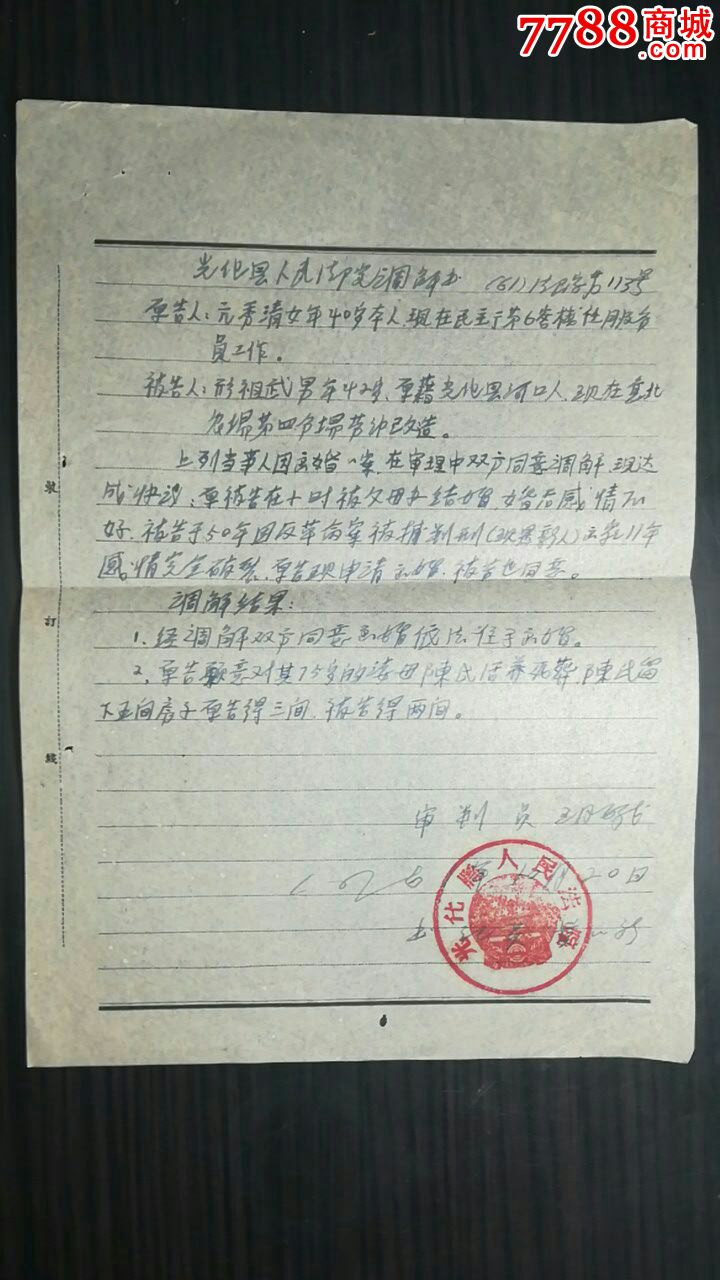 7788商城
.com
光化县人民法院调解书 (61)法民字第113号
原告人:元秀清女年40岁本人,现在民主厂第6客栈任服务
员工作。
被告人:邢祖武男年42岁,原籍光化县河口人,现在
农场第四分场劳动改造。
上列当事人因离婚一案,在审理中双方同意调解,现达
成协议:原被告在十时被父母办结婚,婚后感情不
好,被告于50年因反革命案被捕判刑(现 )11年
感情完全破裂,原告现申请离婚,被告也同意。
调解结果:
1.经调解双方同意离婚依法准予离婚。
2.原告愿意对其75岁的婆母陳氏活养死葬,陳氏留
下五间房子原告得三间,被告得两间。
审判员 王
20日
书
光化縣人民法院
装
訂
綫